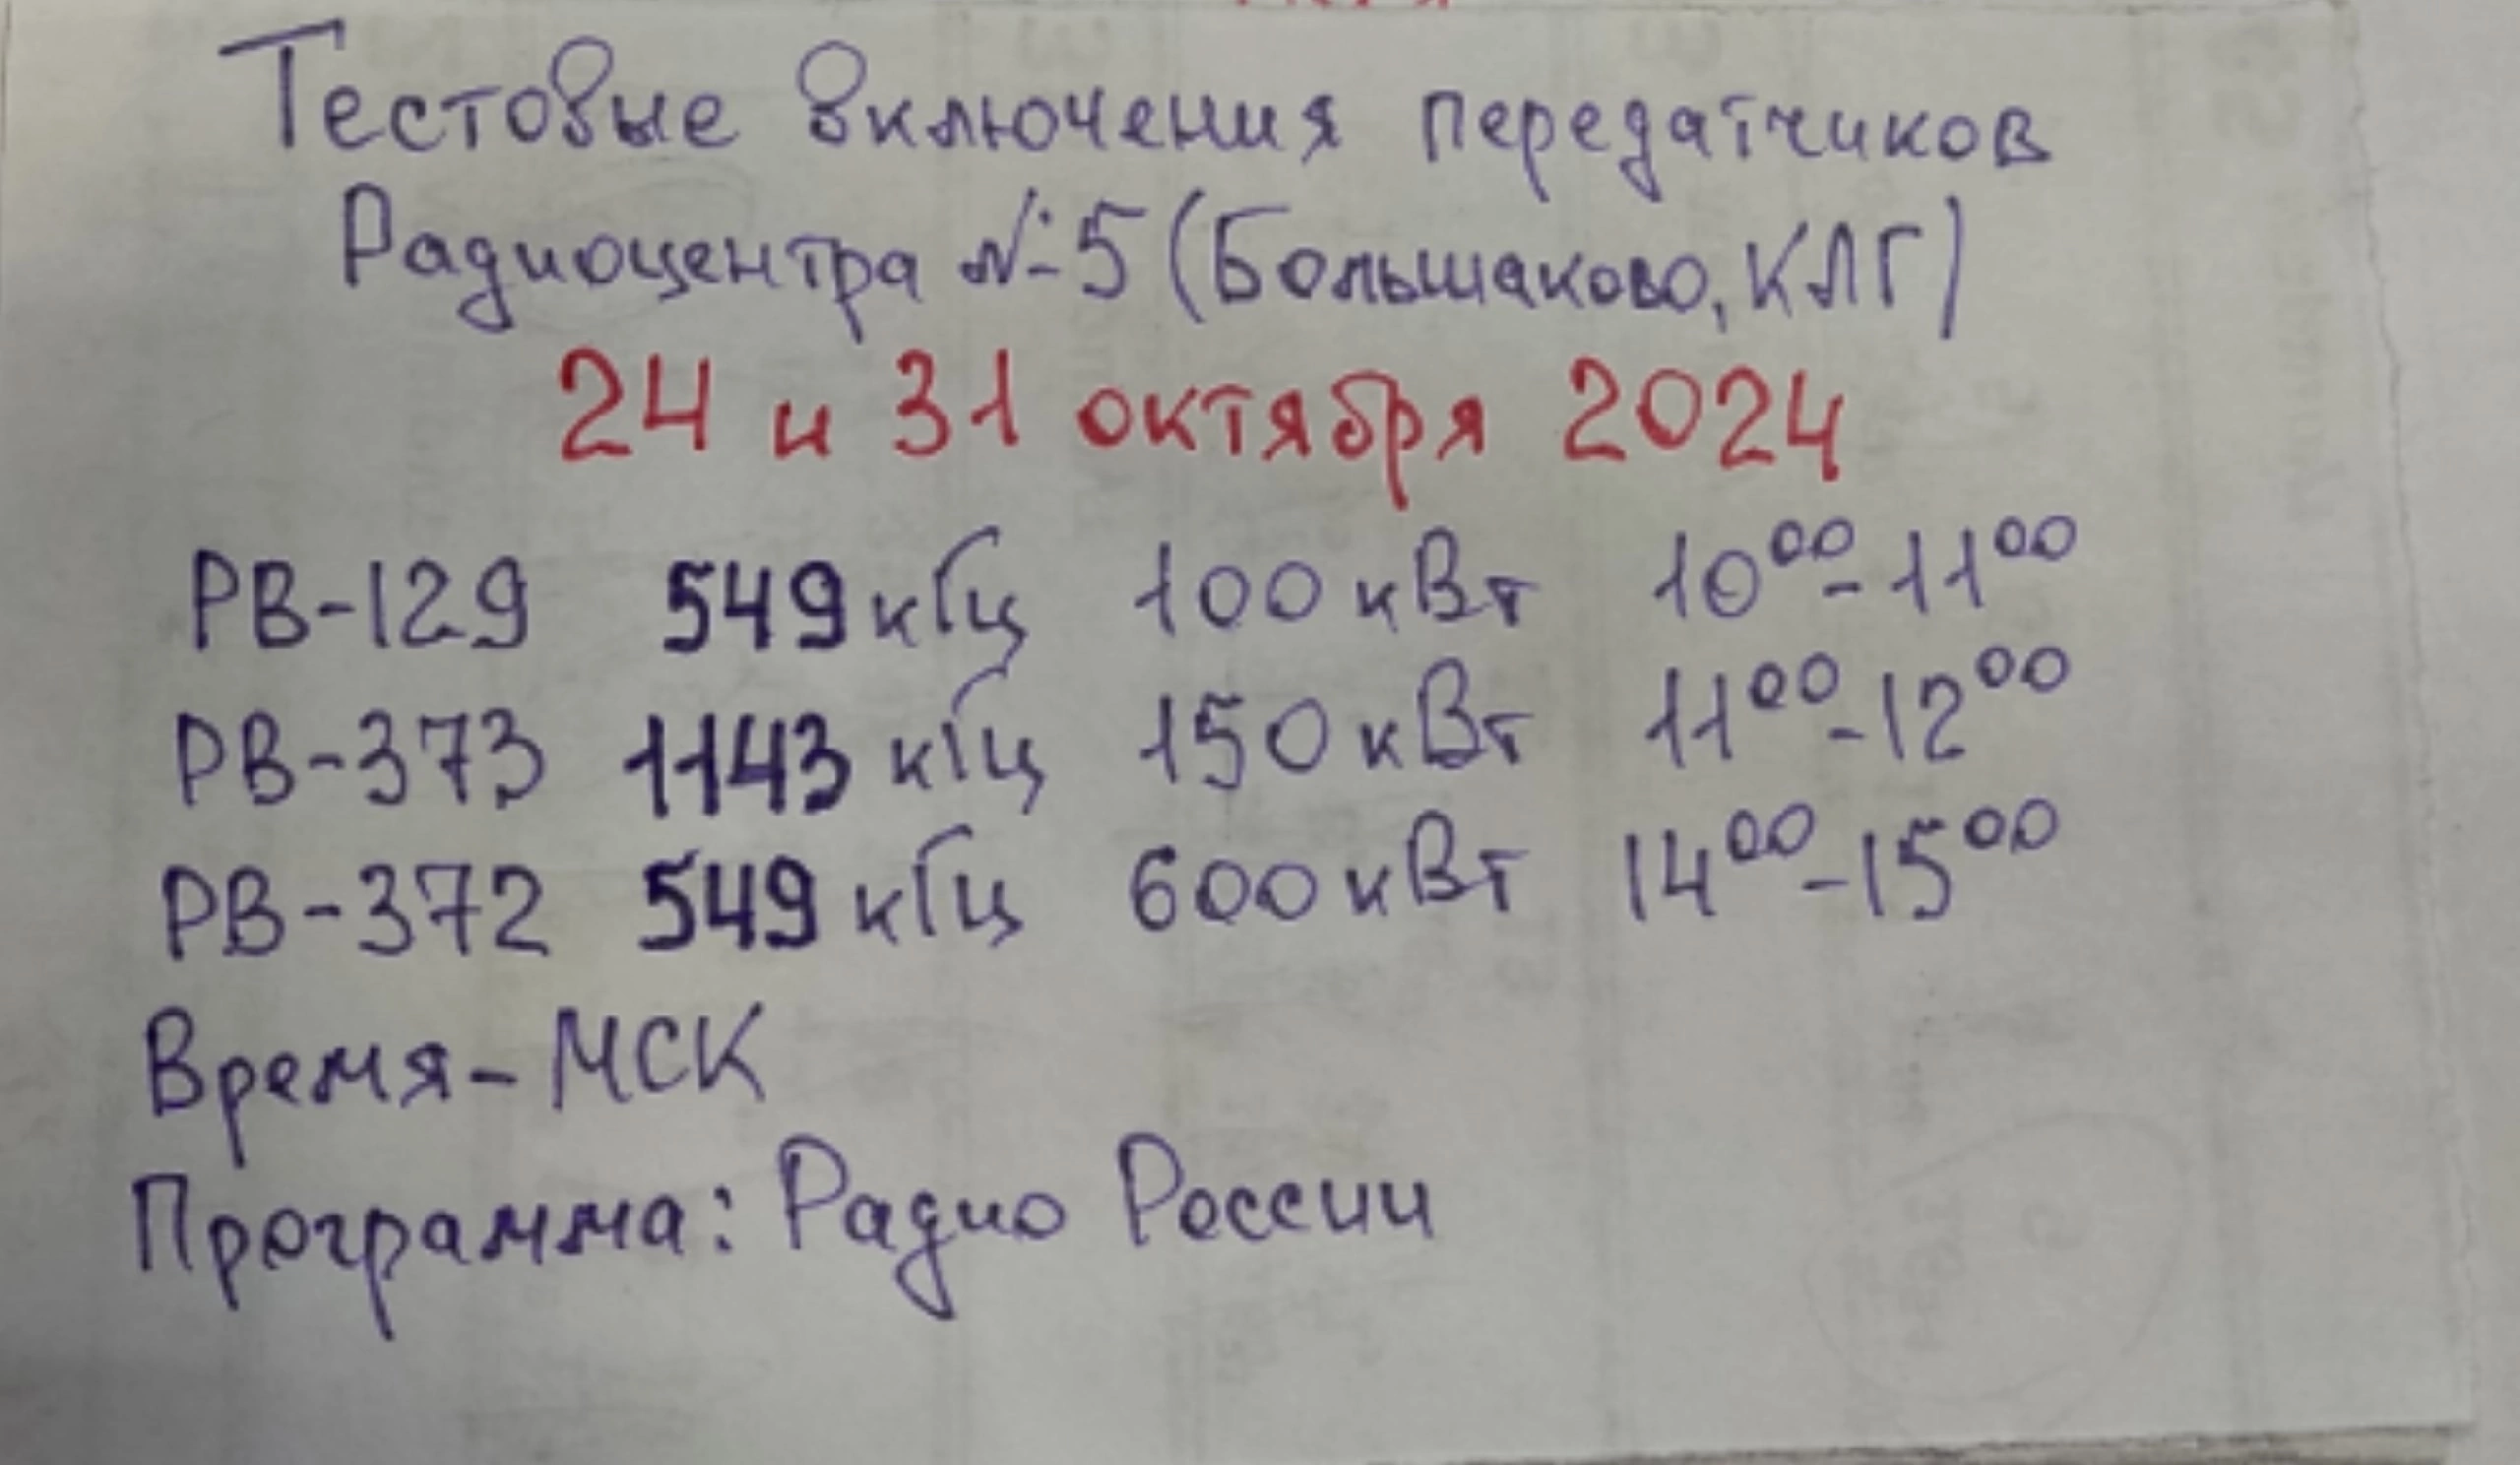 Тестовые включения передатчиков
Радиоцентра №5 (Большаково, КЛГ)
24 и 31 октября 2024
РВ-129 549 кГц 100 кВт 10⁰⁰-11⁰⁰
РВ-373 1143 кГц 150 кВт 11⁰⁰-12⁰⁰
РВ-372 549 кГц 600 кВт 14⁰⁰-15⁰⁰
Время-МСК
Программа: Радио России